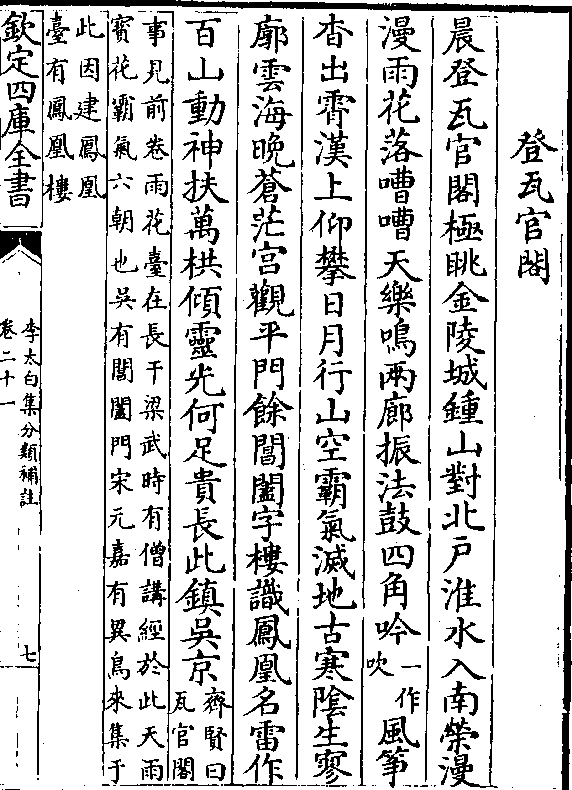 登瓦官閣
晨登瓦官閣極眺金陵城鍾山對北戶淮水入南榮漫
漫雨花落嘈嘈天樂鳴兩廊振法鼓四角吟一作吹風筝
杳出霄漢上仰攀日月行山空霸氣滅地古寒陰生寥
廓雲海晚蒼茫宫觀平門餘閶闔字樓識鳳凰名雷作
百山動神扶萬栱傾靈光何足貴長此鎮吳京齊賢曰瓦官閣
事見前卷雨花臺在長干梁武時有僧講經於此天雨
寳花霸氣六朝也吳有閶闔門宋元嘉有異鳥來集于
此因建鳳凰
臺有鳳凰樓
欽定四庫全書
李太白集分類補註
卷二十一
七